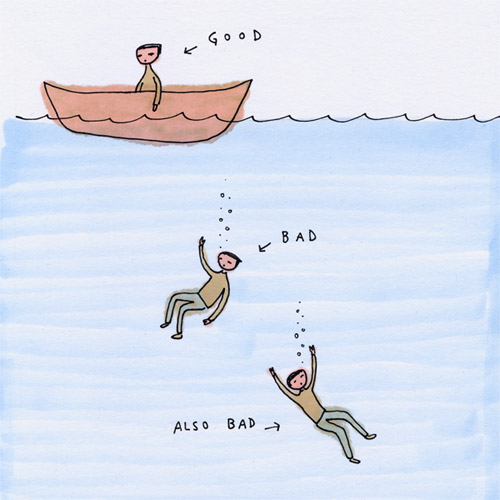 GOOD
BAD
ALSO BAD